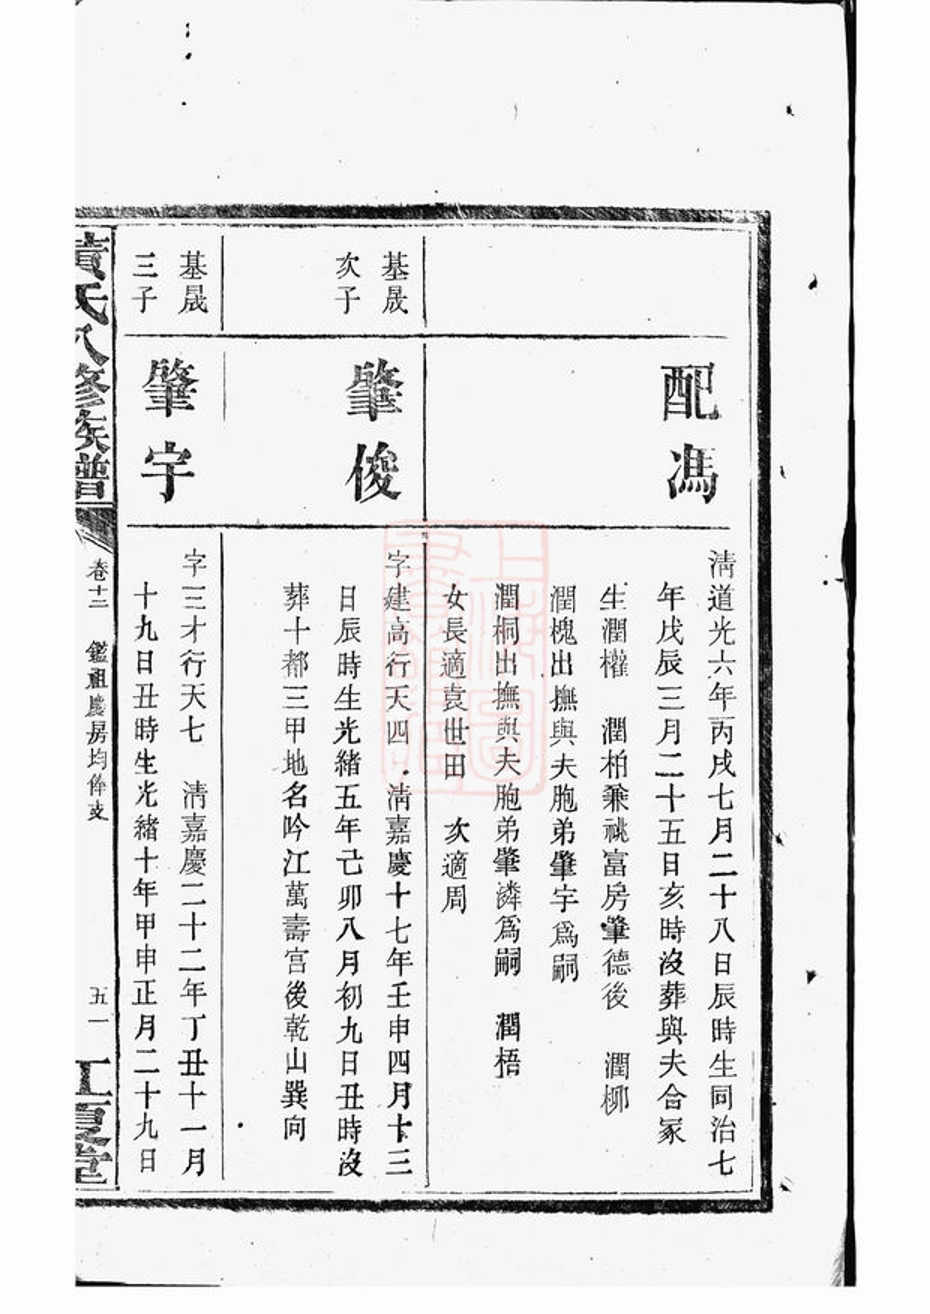 配馮
清道光六年丙戌七月二十八日辰時生同治七
年戊辰三月二十五日亥時沒葬與夫合冢
生潤權　潤柏兼祧富房肇德後　潤柳
潤槐出撫與夫胞弟肇宇爲嗣
潤桐出撫與夫胞弟肇憐爲嗣　潤梧
女長適袁世田　次適周
基晟
次子
肇俊
字建高行天四　清嘉慶十七年壬申四月十三
日辰時生光緒五年己卯八月初九日丑時沒
葬十都三甲地名吟江萬壽宮後乾山巽向
基晟
三子
肇宇
字三才行天七　清嘉慶二十二年丁丑十一月
十九日丑時生光緒十年甲申正月二十九日
黃氏八修族譜
卷十二　鑑祖慶房均俸支
五一
江夏堂
上海圖書館藏